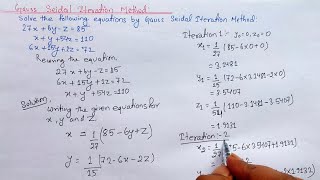 Gauss Seidal Iteration Method:
Solve the following equations by Gauss Seidal Iteration Method:
27x + 6y - z = 85
x + y + 54z = 110
6x + 15y + 2z = 72
Reusing the equation
27x + 6y - z = 85
6x + 15y + 2z = 72
x + y + 54z = 110
Solution:
Writing the given equations for
x, y and z
x = 1/27 (85 - 6y + z)
y = 1/15 (72 - 6x - 2z)
Iteration 1: y₀=0, z₀=0
x₁ = 1/27 (85 - 6x0 + 0)
= 3.1481
y₁ = 1/15 (72 - 6x3.1481 - 2x0)
= 3.5407
z₁ = 1/54 (110 - 3.1481 - 3.5407)
= 1.9131
Iteration:- 2
x₂ = 1/27 (85 - 6x3.5407 + 1.9131)